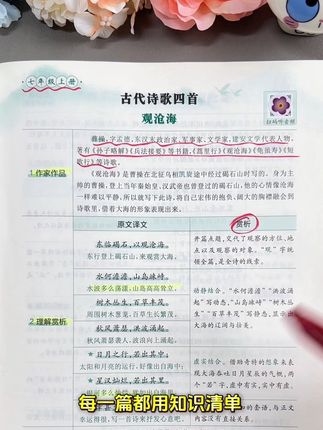 七年级上册
古代诗歌四首
观沧海
扫码听音频
曹操，字孟德，东汉末政治家、军事家、文学家，建安文学代表人物，
著有《孙子略解》《兵法接要》等书籍，《蒿里行》《观沧海》《龟虽寿》《短
歌行》等诗歌。
1 作家作品
《观沧海》是曹操在北征乌桓凯旋途中经过碣石山时写的。身为主
帅的曹操，登上当年秦始皇、汉武帝也曾登过的碣石山，他的心情像沧海
一样难以平静，所以就写下此诗，将自己宏伟的抱负、阔大的胸襟融合到
诗歌里，借着大海的形象表现出来。
原文译文
赏析
东临碣石，以观沧海。
东行登上碣石山，来观赏大海。
开篇点题，交代了观察的方位、地
点以及观察的对象。“观”字统
领全篇，是全诗的线索。
水何澹澹，山岛竦峙。
水波多么荡漾，山岛高高耸立。
树木丛生，百草丰茂。
周围树木葱茏，百草生长繁茂。
秋风萧瑟，洪波涌起。
秋风萧瑟袭人，波浪向上翻涌。
动静结合。“水何澹澹”“洪波涌
起”写动态，“山岛竦峙”“树木丛
生”“百草丰茂”写静态，显示出
大海的辽阔与壮美。
2 理解赏析
★ 日月之行，若出其中；
太阳和月亮的运行，好像出自海中；
★ 星汉灿烂，若出其里。
虚实结合。借助奇特的想象来表
现大海吞吐日月星辰的气概，两
个“若”字，虚中有实，实中有虚。
每一篇都用知识清单
的套语，与正文
内容没有直接关系。